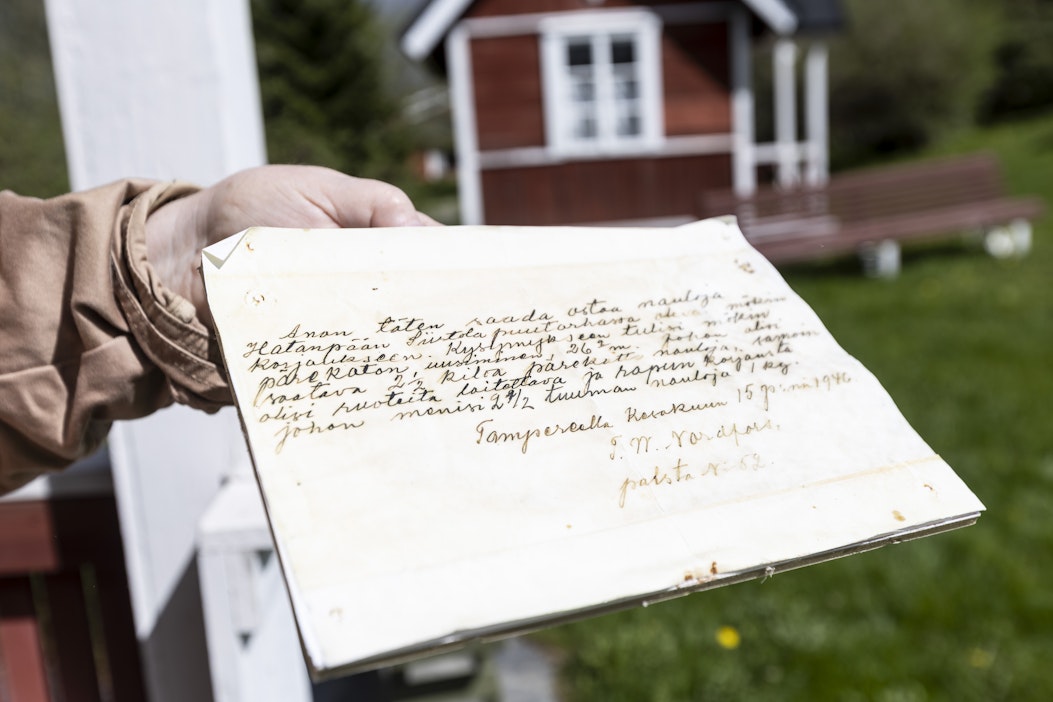 Anon täten saada ostaa nauloja
Hatanpään Siirtolapuutarhassa oleva mökin
korjaukseen. Kysymykseen tulisi mökin
pärekaton, uusiminen, 26² m. johon olisi
2½ kiloa pärekatto nauloja, sanoin
olisi ruoteita laitettava ja rapun korjausta
johon menisi 2½ tuuman nauloja 1 kg
Tampereella Kesäkuun 15 p:nä 1946
T. W. Nordfors.
palsta N:o 52.